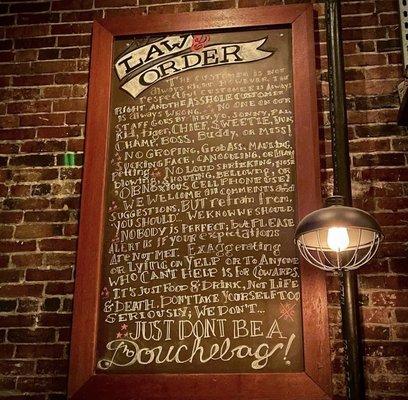 LAW &
ORDER
THE CUSTOMER IS NOT
ALWAYS RIGHT. HOWEVER, THE
RESPECTFUL CUSTOMER IS ALWAYS
RIGHT. AND THE ASSHOLE CUSTOMER
IS ALWAYS WRONG. NO ONE ON OUR
STAFF GOES BY HEY, YO, SONNY, PAL
KID, TIGER, CHIEF, SWEETIE, HUN,
CHAMP, BOSS, BUDDY, OR MISS!
NO GROPING, GRAB ASS, MAULING,
SUCKING FACE, CANOODLING, OR HEAVY
PETTING. NO LOUD SHRIEKING, NOSE
BLOWING, SHOUTING, BELLOWING, OR
OBNOXIOUS CELL PHONE USE!
WE WELCOME ALL COMMENTS AND
SUGGESTIONS, BUT REFRAIN FROM,
YOU SHOULD. WE KNOW WE SHOULD.
NOBODY IS PERFECT, BUT PLEASE
ALERT US IF YOUR EXPECTATIONS
ARE NOT MET. EXAGGERATING
OR LYING ON YELP OR TO ANYONE
WHO CAN'T HELP IS FOR COWARDS.
IT'S JUST FOOD & DRINK, NOT LIFE
& DEATH. DON'T TAKE YOURSELF TOO
SERIOUSLY; WE DON'T...
JUST DON'T BE A
Douchebag!